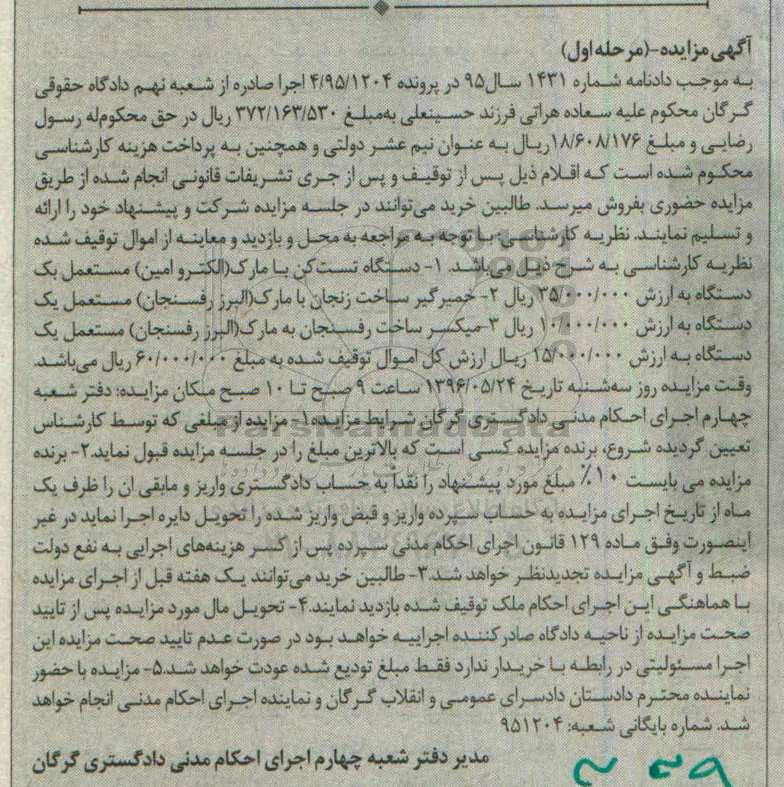 آگهی مزایده-(مرحله اول)
به موجب دادنامه شماره ۱۴۳۱ سال۹۵ در پرونده ۴/۹۵/۱۲۰۴ اجرا صادره از شعبه نهم دادگاه حقوقی
گرگان محکوم علیه سعاده هراتی فرزند حسینعلی به‌مبلغ ۳۷۲/۱۶۳/۵۳۰ ریال در حق محکوم‌له رسول
رضایی و مبلغ ۱۸/۶۰۸/۱۷۶ریال به عنوان نیم عشر دولتی و همچنین به پرداخت هزینه کارشناسی
محکوم شده است که اقلام ذیل پس از توقیف و پس از جری تشریفات قانونی انجام شده از طریق
مزایده حضوری بفروش میرسد. طالبین خرید می‌توانند در جلسه مزایده شرکت و پیشنهاد خود را ارائه
و تسلیم نمایند. نظریه کارشناسی: با توجه به مراجعه به محل و بازدید و معاینه از اموال توقیف شده
نظریه کارشناسی به شرح ذیل می‌باشد. ۱- دستگاه تست‌کن با مارک(الکترو امین) مستعمل یک
دستگاه به ارزش ۳۵/۰۰۰/۰۰۰ ریال ۲- خمیرگیر ساخت زنجان با مارک(البرز رفسنجان) مستعمل یک
دستگاه به ارزش ۱۰/۰۰۰/۰۰۰ ریال ۳-میکسر ساخت رفسنجان به مارک(البرز رفسنجان) مستعمل یک
دستگاه به ارزش ۱۵/۰۰۰/۰۰۰ ریال ارزش کل اموال توقیف شده به مبلغ ۶۰/۰۰۰/۰۰۰ ریال می‌باشد.
وقت مزایده روز سه‌شنبه تاریخ ۱۳۹۶/۰۵/۲۴ ساعت ۹ صبح تا ۱۰ صبح مکان مزایده: دفتر شعبه
چهارم اجرای احکام مدنی دادگستری گرگان شرایط مزایده۱- مزایده از مبلغی که توسط کارشناس
تعیین گردیده شروع، برنده مزایده کسی است که بالاترین مبلغ را در جلسه مزایده قبول نماید.۲- برنده
مزایده می بایست ۱۰٪ مبلغ مورد پیشنهاد را نقداً به حساب دادگستری واریز و مابقی ان را ظرف یک
ماه از تاریخ اجرای مزایده به حساب سپرده واریز و قبض واریز شده را تحویل دایره اجرا نماید در غیر
اینصورت وفق ماده ۱۲۹ قانون اجرای احکام مدنی سپرده پس از کسر هزینه‌های اجرایی به نفع دولت
ضبط و آگهی مزایده تجدیدنظر خواهد شد.۳- طالبین خرید می‌توانند یک هفته قبل از اجرای مزایده
با هماهنگی این اجرای احکام ملک توقیف شده بازدید نمایند.۴- تحویل مال مورد مزایده پس از تایید
صحت مزایده از ناحیه دادگاه صادرکننده اجراییه خواهد بود در صورت عدم تایید صحت مزایده این
اجرا مسئولیتی در رابطه با خریدار ندارد فقط مبلغ تودیع شده عودت خواهد شد.۵- مزایده با حضور
نماینده محترم دادستان دادسرای عمومی و انقلاب گرگان و نماینده اجرای احکام مدنی انجام خواهد
شد. شماره بایگانی شعبه: ۹۵۱۲۰۴
مدیر دفتر شعبه چهارم اجرای احکام مدنی دادگستری گرگان